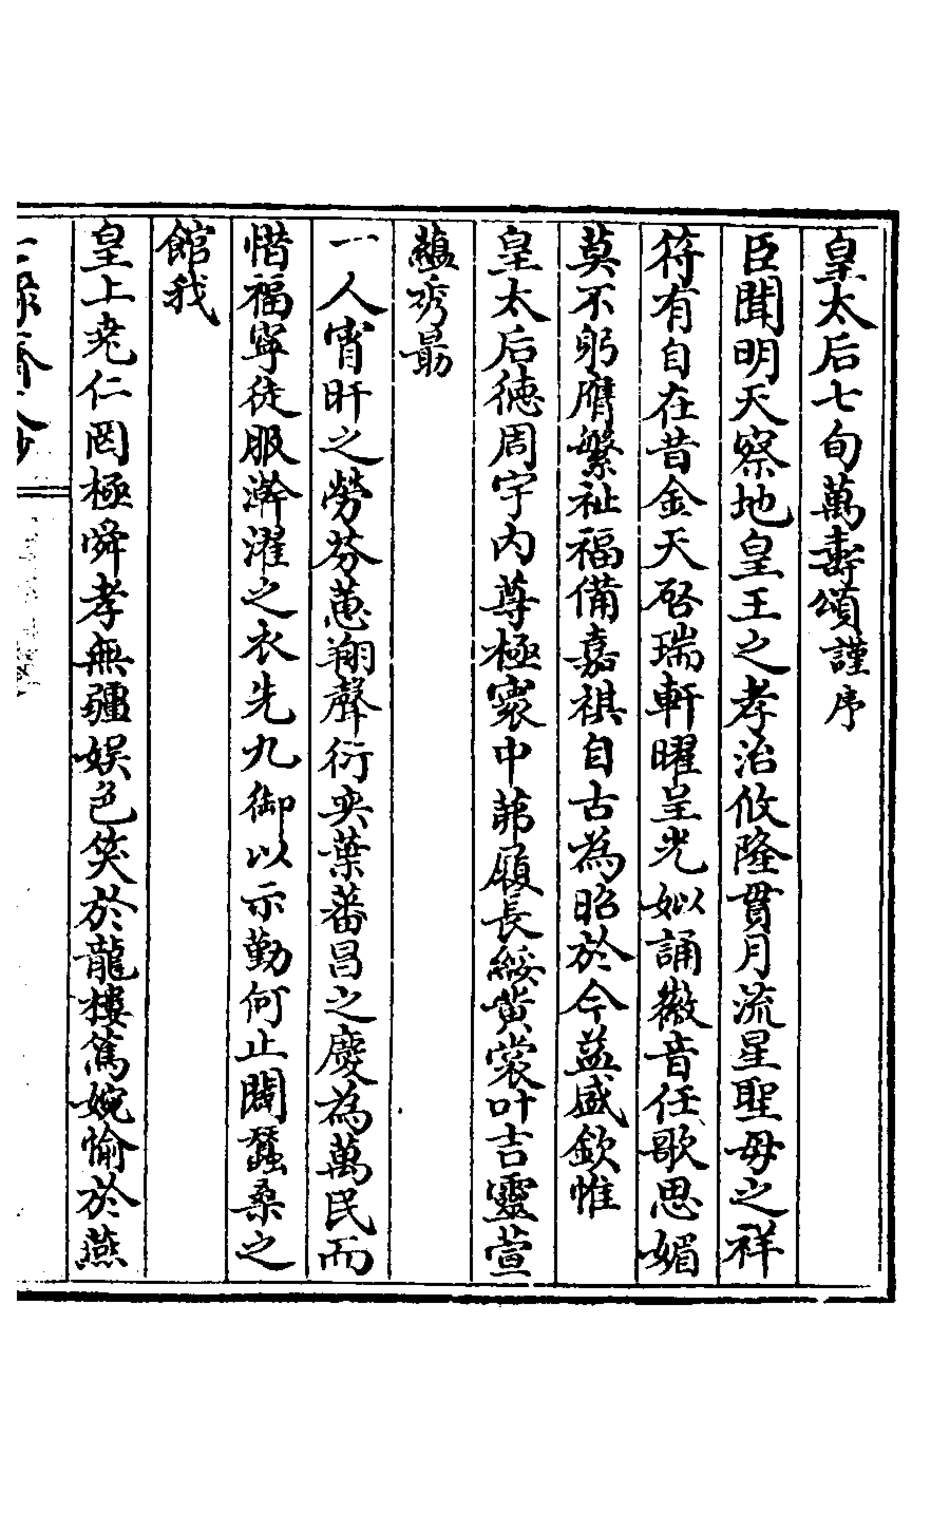 皇太后七旬萬壽頌謹序
臣聞明天察地皇王之孝治攸隆貫月流星聖母之祥
符有自在昔金天啓瑞軒曜呈光姒誦徽音任歌思媚
莫不躬膺繁祉福備嘉祺自古為昭於今益盛欽惟
皇太后德周宇内尊極寰中茀履長綏黄裳叶吉靈萱
蘊秀勗
一人宵旰之勞芬蕙翔聲衍奕葉蕃昌之慶為萬民而
惜福寧徒服澣濯之衣先九御以示勤何止闢蠶桑之
館我
皇上堯仁罔極舜孝無疆娱色笑於龍樓篤婉愉於燕